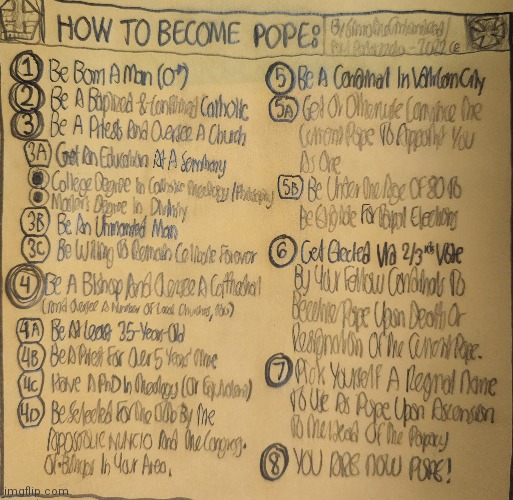 HOW TO BECOME POPE:
By
- 2022 CE
1 Be Born A Man (♂)
2 Be A Baptized & Confirmed Catholic
3 Be A Priest And Oversee A Church
3A Get An Education At A Seminary
College Degree In Catholic Theology/Philosophy
Master's Degree In Divinity
3B Be An Unmarried Man
3C Be Willing To Remain Celibate Forever
4 Be A Bishop And Oversee A Cathedral
(And Oversee A Number Of Local Churches, Also)
4A Be At Least 35-Year-Old
4B Be A Priest For Over 5 Years' Time
4C Have A PhD In Theology (Or Equivalent)
4D Be Selected For The Job By The
Apostolic Nuncio And The Congreg.
Of Bishops In Your Area.
5 Be A Cardinal In Vatican City
5A Get Or Otherwise Convince The
Current Pope To Appoint You
As One
5B Be Under The Age Of 80 To
Be Eligible For Papal Elections
6 Get Elected Via 2/3rds Vote
By Your Fellow Cardinals To
Become Pope Upon Death Or
Resignation Of The Current Pope.
7 Pick Yourself A Regnal Name
To Use As Pope Upon Ascension
To The Head Of The Papacy
8 YOU ARE NOW POPE!
imgflip.com